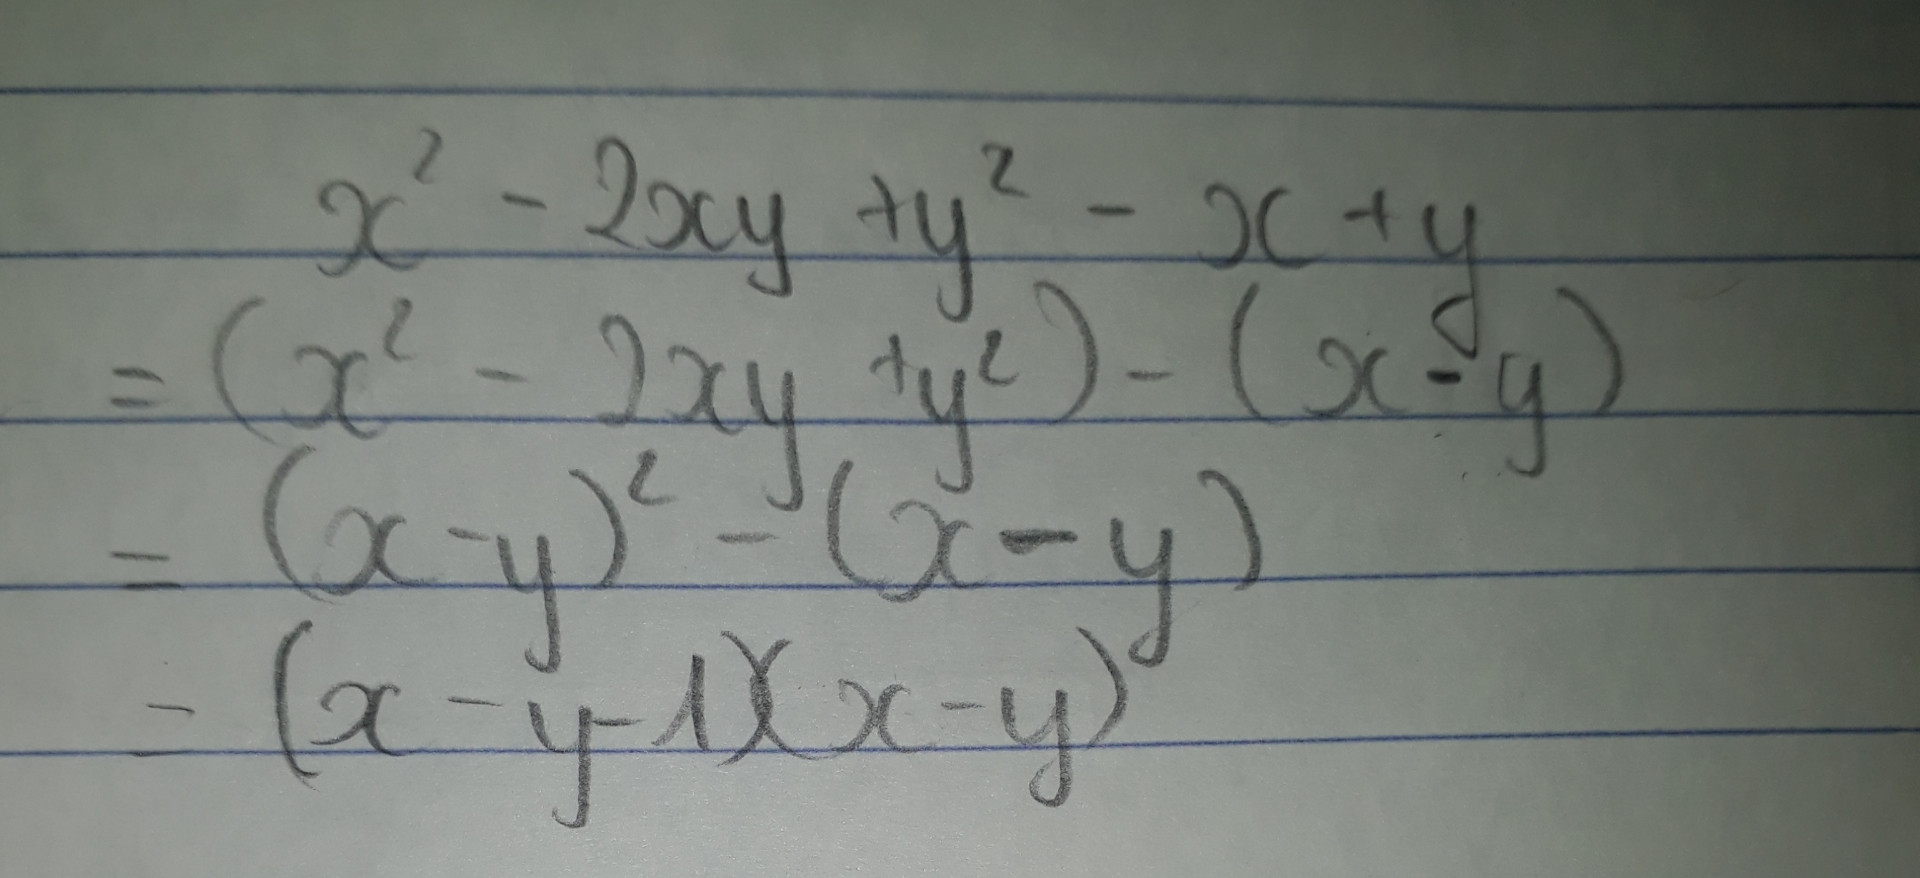 x² - 2xy + y² - x + y
= (x² - 2xy + y²) - (x - y)
= (x - y)² - (x - y)
= (x - y - 1)(x - y)